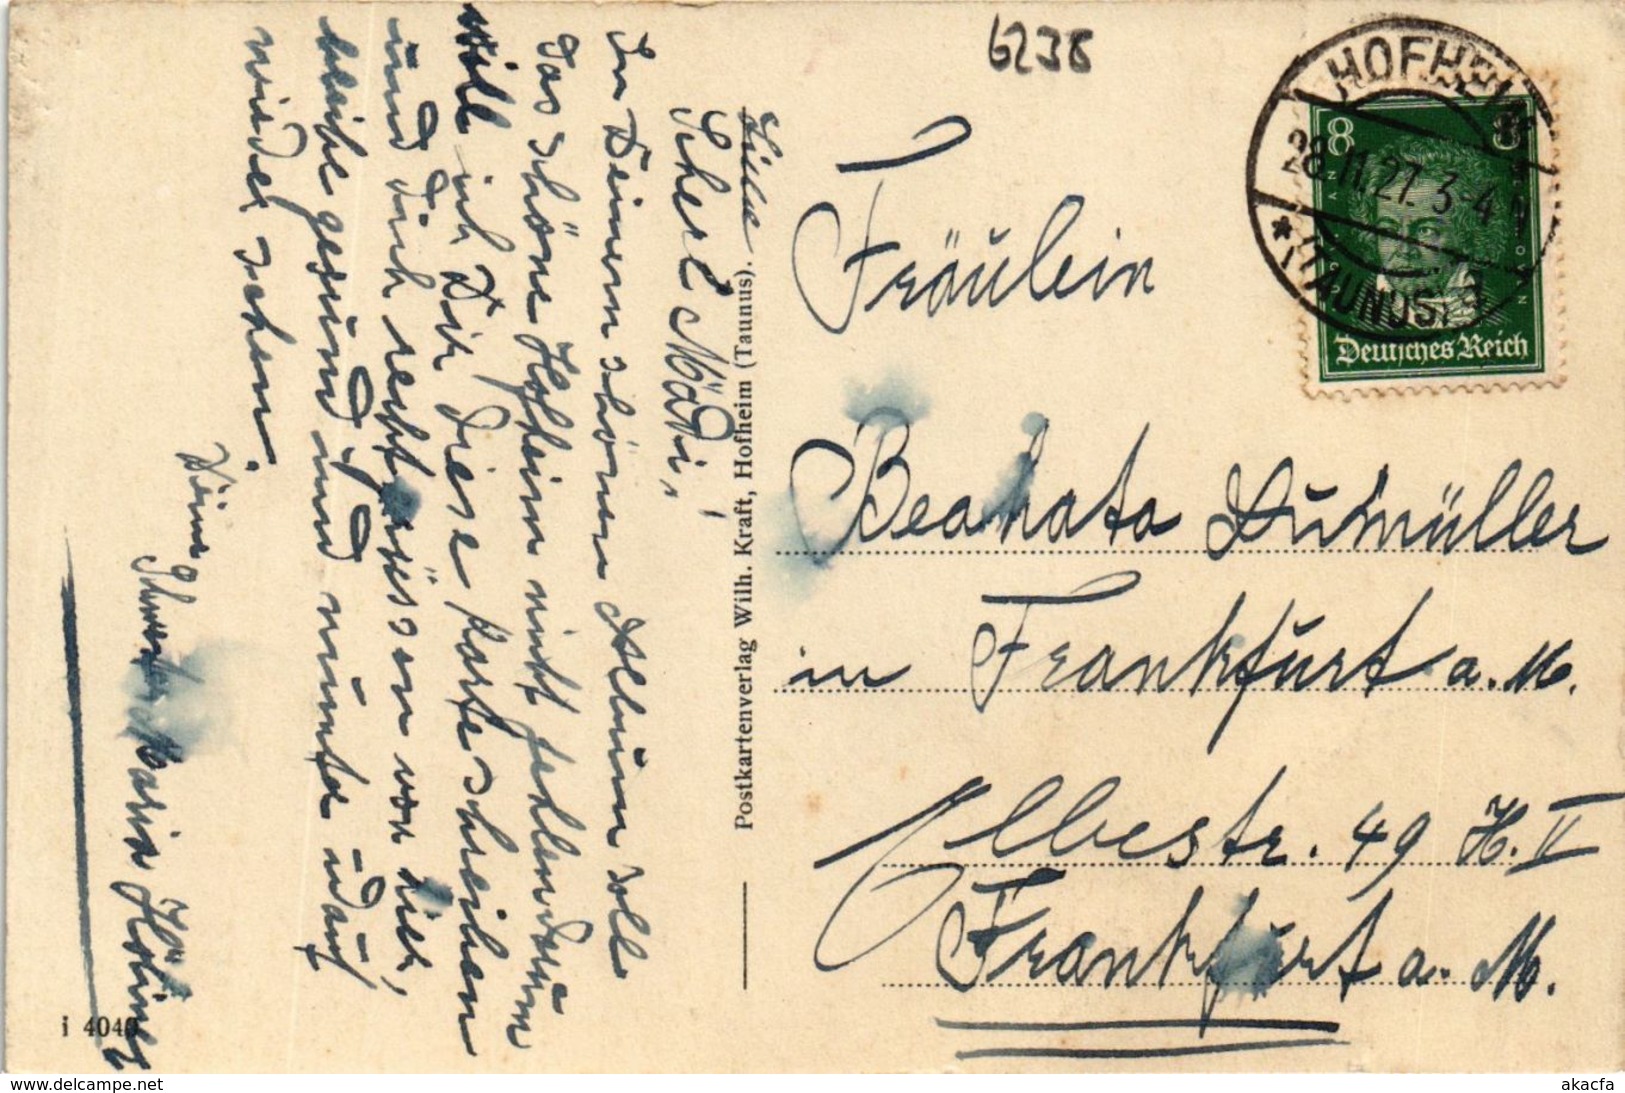 6238
HOFHEIM
28.11.27. 3-4 N
* (TAUNUS) a
8 8
Deutsches Reich
Fräulein
Beahata Dumüller
in Frankfurt a. M.
Elbestr. 49 H. II
Frankfurt a. M.
Liebe
Scherl Mädi,
In Deinem schönen Album soll
das schöne Hofheim nicht fehlen darum
will ich Dir diese Karte schreiben
und Dich recht grüssen von hier,
bleibe gesund und munter u. auf
wieder sehen.
Deine
Maria
Postkartenverlag Wilh. Kraft, Hofheim (Taunus).
i 4040
delcampe.net
akacfa